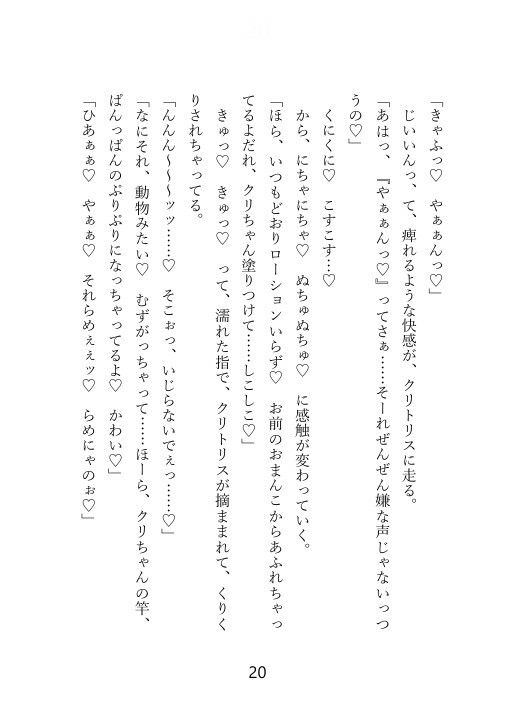 「きゃふっ♡　やぁぁんっ♡」
　じいいんっ、て、痺れるような快感が、クリトリスに走る。
「あはっ、『やぁぁんっ♡』ってさぁ……そーれぜんぜん嫌な声じゃないっつ
うの♡」
　くにくに♡　こすこす…♡
　から、にちゃにちゃ♡　ぬちゅぬちゅ♡　に感触が変わっていく。
「ほら、いつもどおりローションいらず♡　お前のおまんこからあふれちゃっ
てるよだれ、クリちゃん塗りつけて……しこしこ♡」
　きゅっ♡　きゅっ♡　って、濡れた指で、クリトリスが摘ままれて、くりく
りされちゃってる。
「んんん〜〜〜ッッ……♡　そこぉっ、いじらないでぇっ……♡」
「なにそれ、動物みたい♡　むずがっちゃって……ほーら、クリちゃんの竿、
ぱんっぱんのぷりぷりになっちゃってるよ♡　かわい♡」
「ひあぁぁ♡　やぁぁ♡　それらめぇぇッ♡　らめにゃのぉ♡」
20